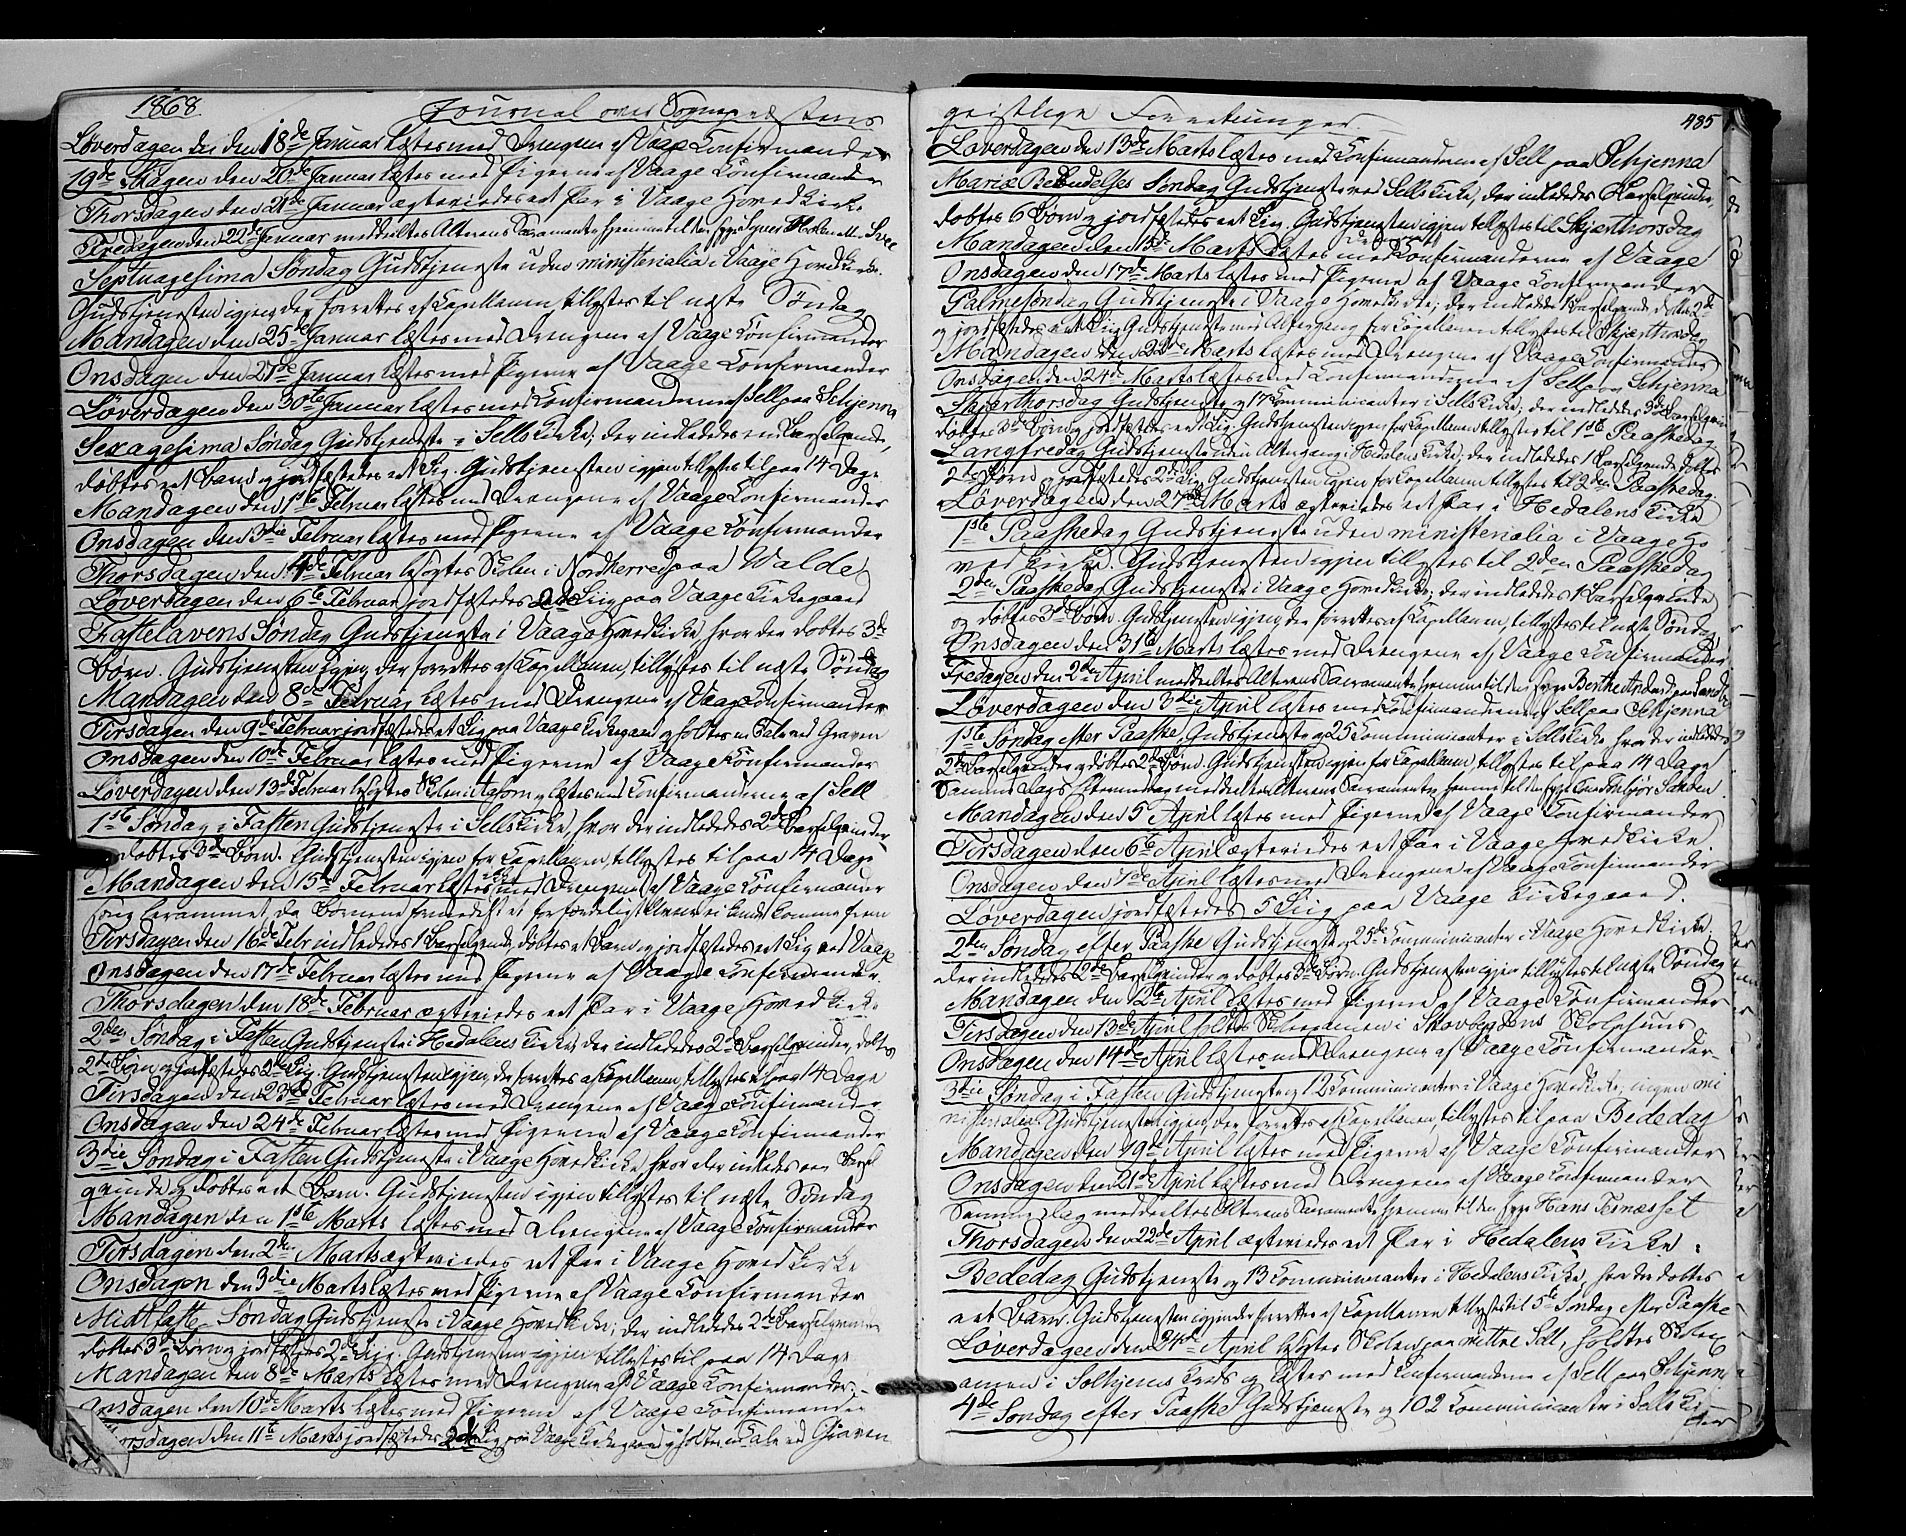 1868. Journal over Sognepræstens
Løverdagen den 18de Januar læstes med Drengene af Vaage Confirmander
Mandagen den 20de Januar læstes med Pigerne af Vaage Confirmander
Thorsdagen den 21de Januar ægteviedes et Par i Vaage Hovedkirke
Fredagen den 22de Januar meddeeltes Alterens Sacramente hjemme til den syge
Septuagesima Søndag Gudstjeneste uden ministerialia i Vaage Hovedkirke.
Gudstjenesten igjen, der forrettes af Kapellanen, tillystes til næste Søndag
Mandagen den 25de Januar læstes med Drengene af Vaage Confirmander
Onsdagen den 27de Januar læstes med Pigerne af Vaage Confirmander
Løverdagen den 30te Januar læstes med Confirmanderne af Sell paa Schjenna
Sexagesima Søndag Gudstjeneste i Sells Kirke; der indledede en Barselqvinde,
døbtes et Barn og jordfæstedes et Lig. Gudstjenesten igjen tillystes til paa 14 Dage
Mandagen den 1ste Februar læstes med Drengene af Vaage Confirmander
Onsdagen den 3die Februar læstes med Pigerne af Vaage Confirmander
Thorsdagen den 4de Februar besøgtes Skolen i Nordherred paa Valde
Løverdagen den 6te Februar jordfæstedes 2de Liig paa Vaage Kirkegaard
Fastelavens Søndag Gudstjeneste i Vaage Hovedkirke, hvor der døbtes 3de
Børn. Gudstjenesten igjen, der forrettes af Kapellanen, tillystes til næste Søndag
Mandagen den 8de Februar læstes med Drengene af Vaage Confirmander
Tirsdagen den 9de Februar jordfæstedes et Lig paa Vaage Kirkegaard og holdtes en Tale ved Graven
Onsdagen den 10de Februar læstes med Pigerne af Vaage Confirmander
Løverdagen den 13de Februar besøgtes Skolen i og læstes med Confirmanderne af Sell
1ste Søndag i Fasten Gudstjeneste i Sells Kirke, hvor der indledede 2de Barselqvinder
døbtes 3de Børn. Gudstjenesten igjen for Kapellanen, tillystes til paa 14 Dage
Mandagen den 15de Februar læstes med Drengene af Vaage Confirmander
Tirsdagen den 16de Febr indledede 1 Barselqvinde, døbtes et Barn og jordfæstedes et Lig ved Vaage
Onsdagen den 17de Februar læstes med Pigerne af Vaage Confirmander.
Thorsdagen den 18de Februar ægteviedes et Par i Vaage Hovedkirke
2den Søndag i Fasten Gudstjeneste i Hedalens Kirke, der indledede 2de Barselqvinder, døbtes
2de Børn og jordfæstedes 3de Lig. Gudstjenesten igjen, der forrettes af Kapellanen, tillystes til paa 14 Dage
Tirsdagen den 23de Februar læstes med Drengene af Vaage Confirmander
Onsdagen den 24de Februar læstes med Pigerne af Vaage Confirmander
3die Søndag i Fasten Gudstjeneste i Vaage Hovedkirke, hvor der indledede en Barsel
qvinde og døbtes et Barn. Gudstjenesten igjen tillystes til næste Søndag
Mandagen den 1ste Marts læstes med Drengene af Vaage Confirmander
Tirsdagen den 2den Marts ægteviedes et Par i Vaage Hovedkirke
Onsdagen den 3die Marts læstes med Pigerne af Vaage Confirmander
Midtfaste Søndag Gudstjeneste i Vaage Hovedkirke; der indledede 2de Barselqvinder
døbtes 3de Børn og jordfæstes 2de Lig. Gudstjenesten igjen tillystes til paa 14 Dage
Mandagen den 8de Marts læstes med Drengene af Vaage Confirmander
Onsdagen den 10de Marts læstes med Pigerne af Vaage Confirmander
Thorsdagen den 11te Marts jordfæstedes 2de Lig paa Vaage Kirkegaard og holdtes en Tale ved Graven
geistlige Forretninger. 485
Løverdagen den 13de Marts læstes med Confirmanderne af Sell paa Schjenna
Mariæ Bebudelses Søndag Gudstjeneste ved Sells Kirke, der indledede Barselqvinder,
døbtes 6 Børn og jordfæstedes et Lig. Gudstjenesten igjen tillystes til Skjærthorsdag
Mandagen den 15de Marts læstes med Confirmanderne af Vaage
Onsdagen den 17de Marts læstes med Pigerne af Vaage Confirmander
Palmesøndag Gudstjeneste i Vaage Hovedkirke; der indledede 1 Barselqvinde, døbtes 2de
og jordfæstedes et Lig. Gudstjeneste med Altergang for Kapellanen tillystes til Skjærthorsdag
Mandagen den 22de Marts læstes med Drengene af Vaage Confirmander
Onsdagen den 24de Marts læstes med Confirmanderne af Sell paa Schjenna
Skjærthorsdag Gudstjeneste og 17 Communicanter i Sells Kirke; der indledede 3de Barselqvinder
døbtes 3de Børn og jordfæstedes et Lig. Gudstjenesten igjen for Kapellanen tillystes til 1ste Paaskedag
Langfredag Gudstjeneste uden Altergang i Hedalens Kirke; der indledede 1 Barselqvinde, døbtes
2de Børn og jordfæstedes 2de Lig. Gudstjenesten igjen for Kapellanen tillystes til 2den Paaskedag.
Løverdagen den 27de Marts ægteviedes et Par i Hedalens Kirke
1ste Paaskedag Gudstjeneste uden ministerialia i Vaage Ho
vedkirke. Gudstjenesten igjen tillystes til 2den Paaskedag
2den Paaskedag Gudstjeneste i Vaage Hovedkirke; der indledede 1 Barselqvinde
og døbtes 3de Børn. Gudstjenesten igjen, der forrettes af Kapellanen, tillystes til næste Søndag
Onsdagen den 31te Marts læstes med Drengene af Vaage Confirmander
Fredagen den 2den April meddeeltes Alterens Sacramente hjemme til den syge Berthe
Løverdagen den 3die April læstes med Confirmanderne af Sell paa Schjenna
1ste Søndag efter Paaske, Gudstjeneste og 25 Communicanter i Sells Kirke hvor der indledede
2de Barselqvinder og døbtes 2de Børn. Gudstjenesten igjen for Kapellanen, tillystes til paa 14 Dage
Samme Dags Eftermiddag meddeeltes Alterens Sacramente hjemme til den syge
Mandagen den 5 April læstes med Pigerne af Vaage Confirmander
Tirsdagen den 6te April ægteviedes et Par i Vaage Hovedkirke
Onsdagen den 7de April læstes med Drengene af Vaage Confirmander
Løverdagen jordfæstedes 5 Liig paa Vaage Kirkegaard.
2den Søndag efter Paaske Gudstjeneste og 25de Communicanter i Vaage Hovedkirke.
der indledede 2de Barselqvinder og døbtes 3de Børn. Gudstjenesten igjen tillystes til næste Søndag
Mandagen den 12te April læstes med Pigerne af Vaage Confirmander
Tirsdagen den 13de April holdtes Skoleexamen i Skovbygdens Skolehuus
Onsdagen den 14de April læstes med Drengene af Vaage Confirmander
3die Søndag i Fasten Gudstjeneste og 12 Communicanter i Vaage Hovedkirke; ingen mi
nisterialia. Gudstjenesten igjen, der forrettes af Kapellanen, tillystes til paa Bededag
Mandagen den 19de April læstes med Pigerne af Vaage Confirmander
Onsdagen den 21de April læstes med Drengene af Vaage Confirmander
Samme Dag meddeeltes Alterens Sacramente hjemme til den syge Hans
Thorsdagen den 22de April ægteviedes et Par i Hedalens Kirke.
Bededag Gudstjeneste og 13 Communicanter i Hedalens Kirke, hvor der døbtes
et Barn. Gudstjenesten igjen der forrettes af Kapellanen tillystes til 5te Søndag efter Paaske
Løverdagen den 24de April besøgtes Skolen paa Sell, holdtes Skoleex
amen i Solhjems Kreds og læstes med Confirmanderne af Sell paa Schjenna
4de Søndag efter Paaske Gudstjeneste og 102 Communicanter i Sells Kirke
der